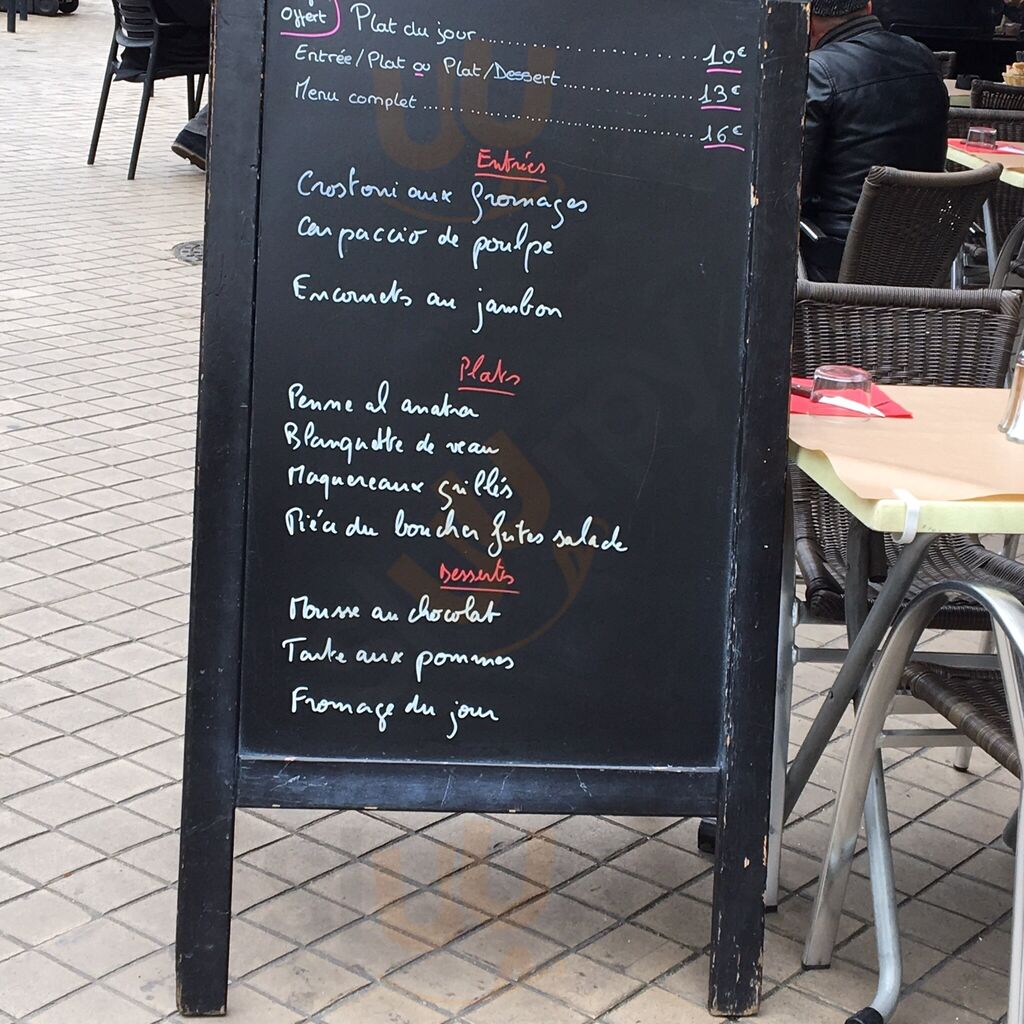 offert
Plat du jour 10€
Entrée/Plat ou Plat/Dessert 13€
Menu complet 16€
Entrées
Crostoni aux fromages
Carpaccio de poulpe
Encornets au jambon
Plats
Penne al anatra
Blanquette de veau
Maquereaux grillés
Pièce du boucher frites salade
Desserts
Mousse au chocolat
Tarte aux pommes
Fromage du jour